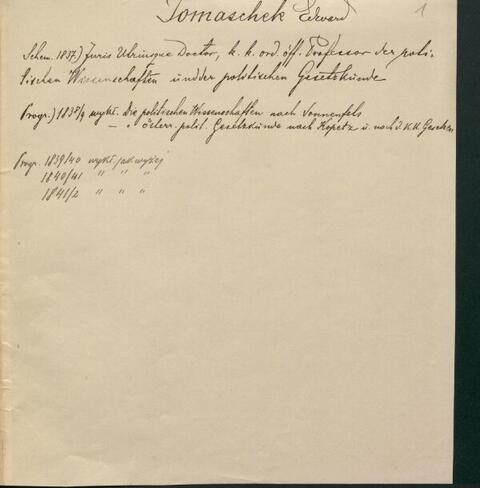 Tomaschek Edward
1
Schem. 1837.) Juris Utriusque Doctor, k. k. ord. öff. Professor der poli-
tischen Wissenschaften und der politischen Gesetzkunde
Progr.) 1838/9 wykł. Die politischen Wissenschaften nach Sonnenfels
— " österr. polit. Gesetzkunde nach Kopetz u. nach d. k.k. Gesetzen
Progr. 1839/40 wykł. jak wyżej
1840/41 " " "
1841/2 " " "